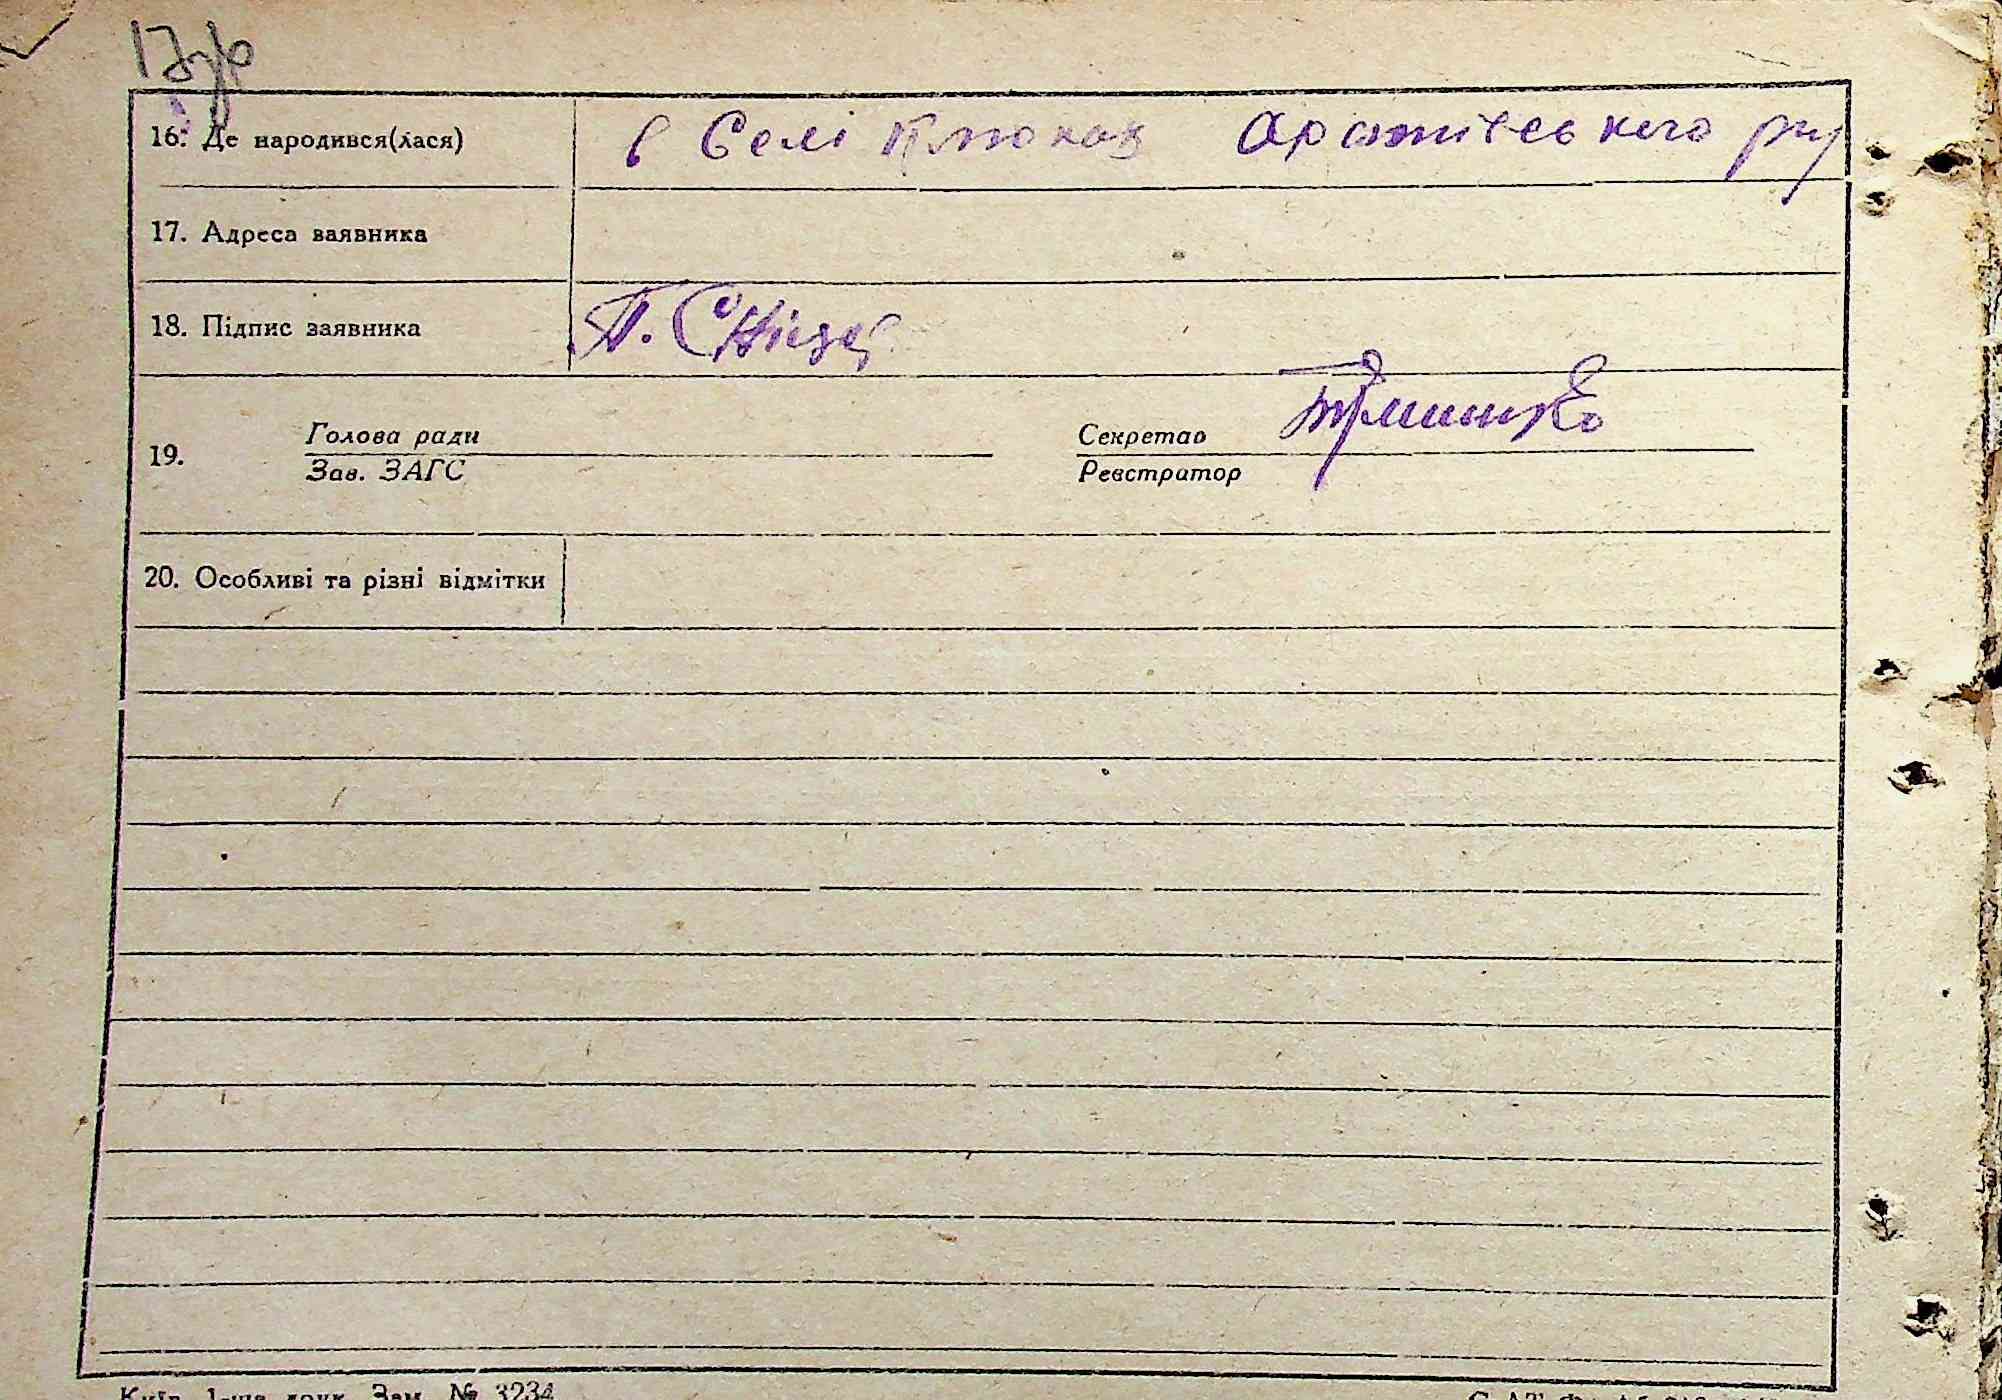 16. Де народився(лася) в Селі Клюках Оратівського р-ну
17. Адреса заявника
18. Підпис заявника П.
Голова ради Секретар
19.
Зав. ЗАГС Реєстратор
20. Особливі та різні відмітки
Київ, 1-ша друк. Зам. № 3234